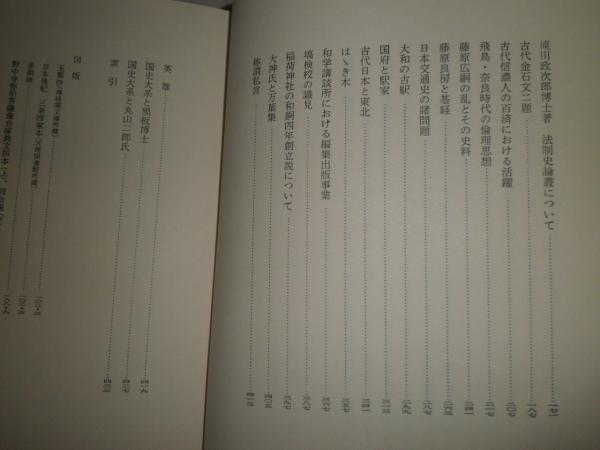 滝川政次郎博士著 法制史論叢について 一七一
古代金石文二題 一八七
古代信濃人の百済における活躍 二〇七
飛鳥・奈良時代の倫理思想 二一七
藤原広嗣の乱とその史料 二四三
藤原良房と基経 二六三
日本交通史の諸問題 二八七
大和の古駅 二九九
国府と駅家 三一三
古代日本と東北 三四一
はゝき木 三五七
和学講談所における編集出版事業 三六七
塙検校の識見 三八七
稲荷神社の和銅四年創立説について 三九七
大神氏と万葉集 四〇五
称謂私言 四一三
英雄 四一九
国史大系と黒板博士
国史大系と丸山二郎氏 四二七
索引 四三三
図版
玉葉抄
日本後紀 三条西家本(天理図書館所蔵)
多胡碑
野中寺弥勒菩薩像台座銘文拓本